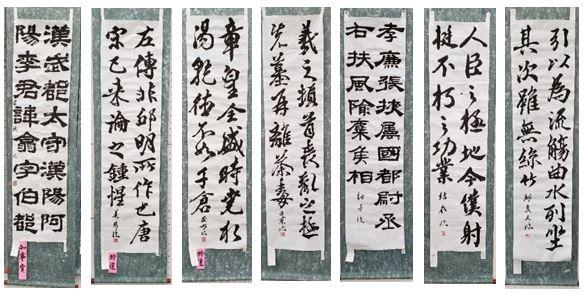 漢武都太守漢陽阿
陽李君諱翕字伯都
知事賞
左傳非邱明所作也唐
宋已来論之鍾惺
特選
章皇全盛時
特選
羲之頓首喪亂之極
先墓再離荼毒
孝廉張掖屬國都尉丞
右扶風隃麋侯相
人臣之極地今僕射
挺不朽之功業
引以為流觴曲水列坐
其次雖無絲竹